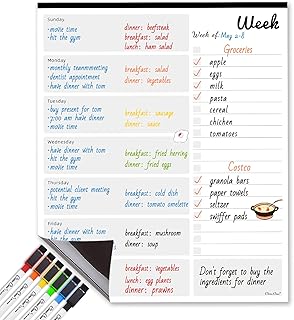 Week
Week of: May 2-8
Sunday
· movie time
· hit the gym
dinner: beefsteak
breakfast: salad
lunch: ham salad
Monday
· monthly teammmeeting
· dentist appointment
· have dinner with tom
breakfast: salad
dinner: vegetables
Tuesday
· buy present for tom
· 7:00 am have dinner
· movie time
breakfast: sausage
dinner: sauce
Wednesday
· have dinner with tom
· hit the gym
breakfast: fried herring
dinner: fried eggs
Thursday
· potential client meeting
· hit the gym
· have dinner with tom
breakfast: cold dish
dinner: tomato omelette
Friday
· have dinner with tom
· movie time
breakfast: mushroom
dinner: soup
breakfast: vegetables
lunch: egg plants
dinner: prawns
Groceries
apple
eggs
milk
pasta
cereal
chicken
tomatoes
Costco
granola bars
paper towels
seltzer
swiffer pads
Don't forget to buy the
ingredients for dinner